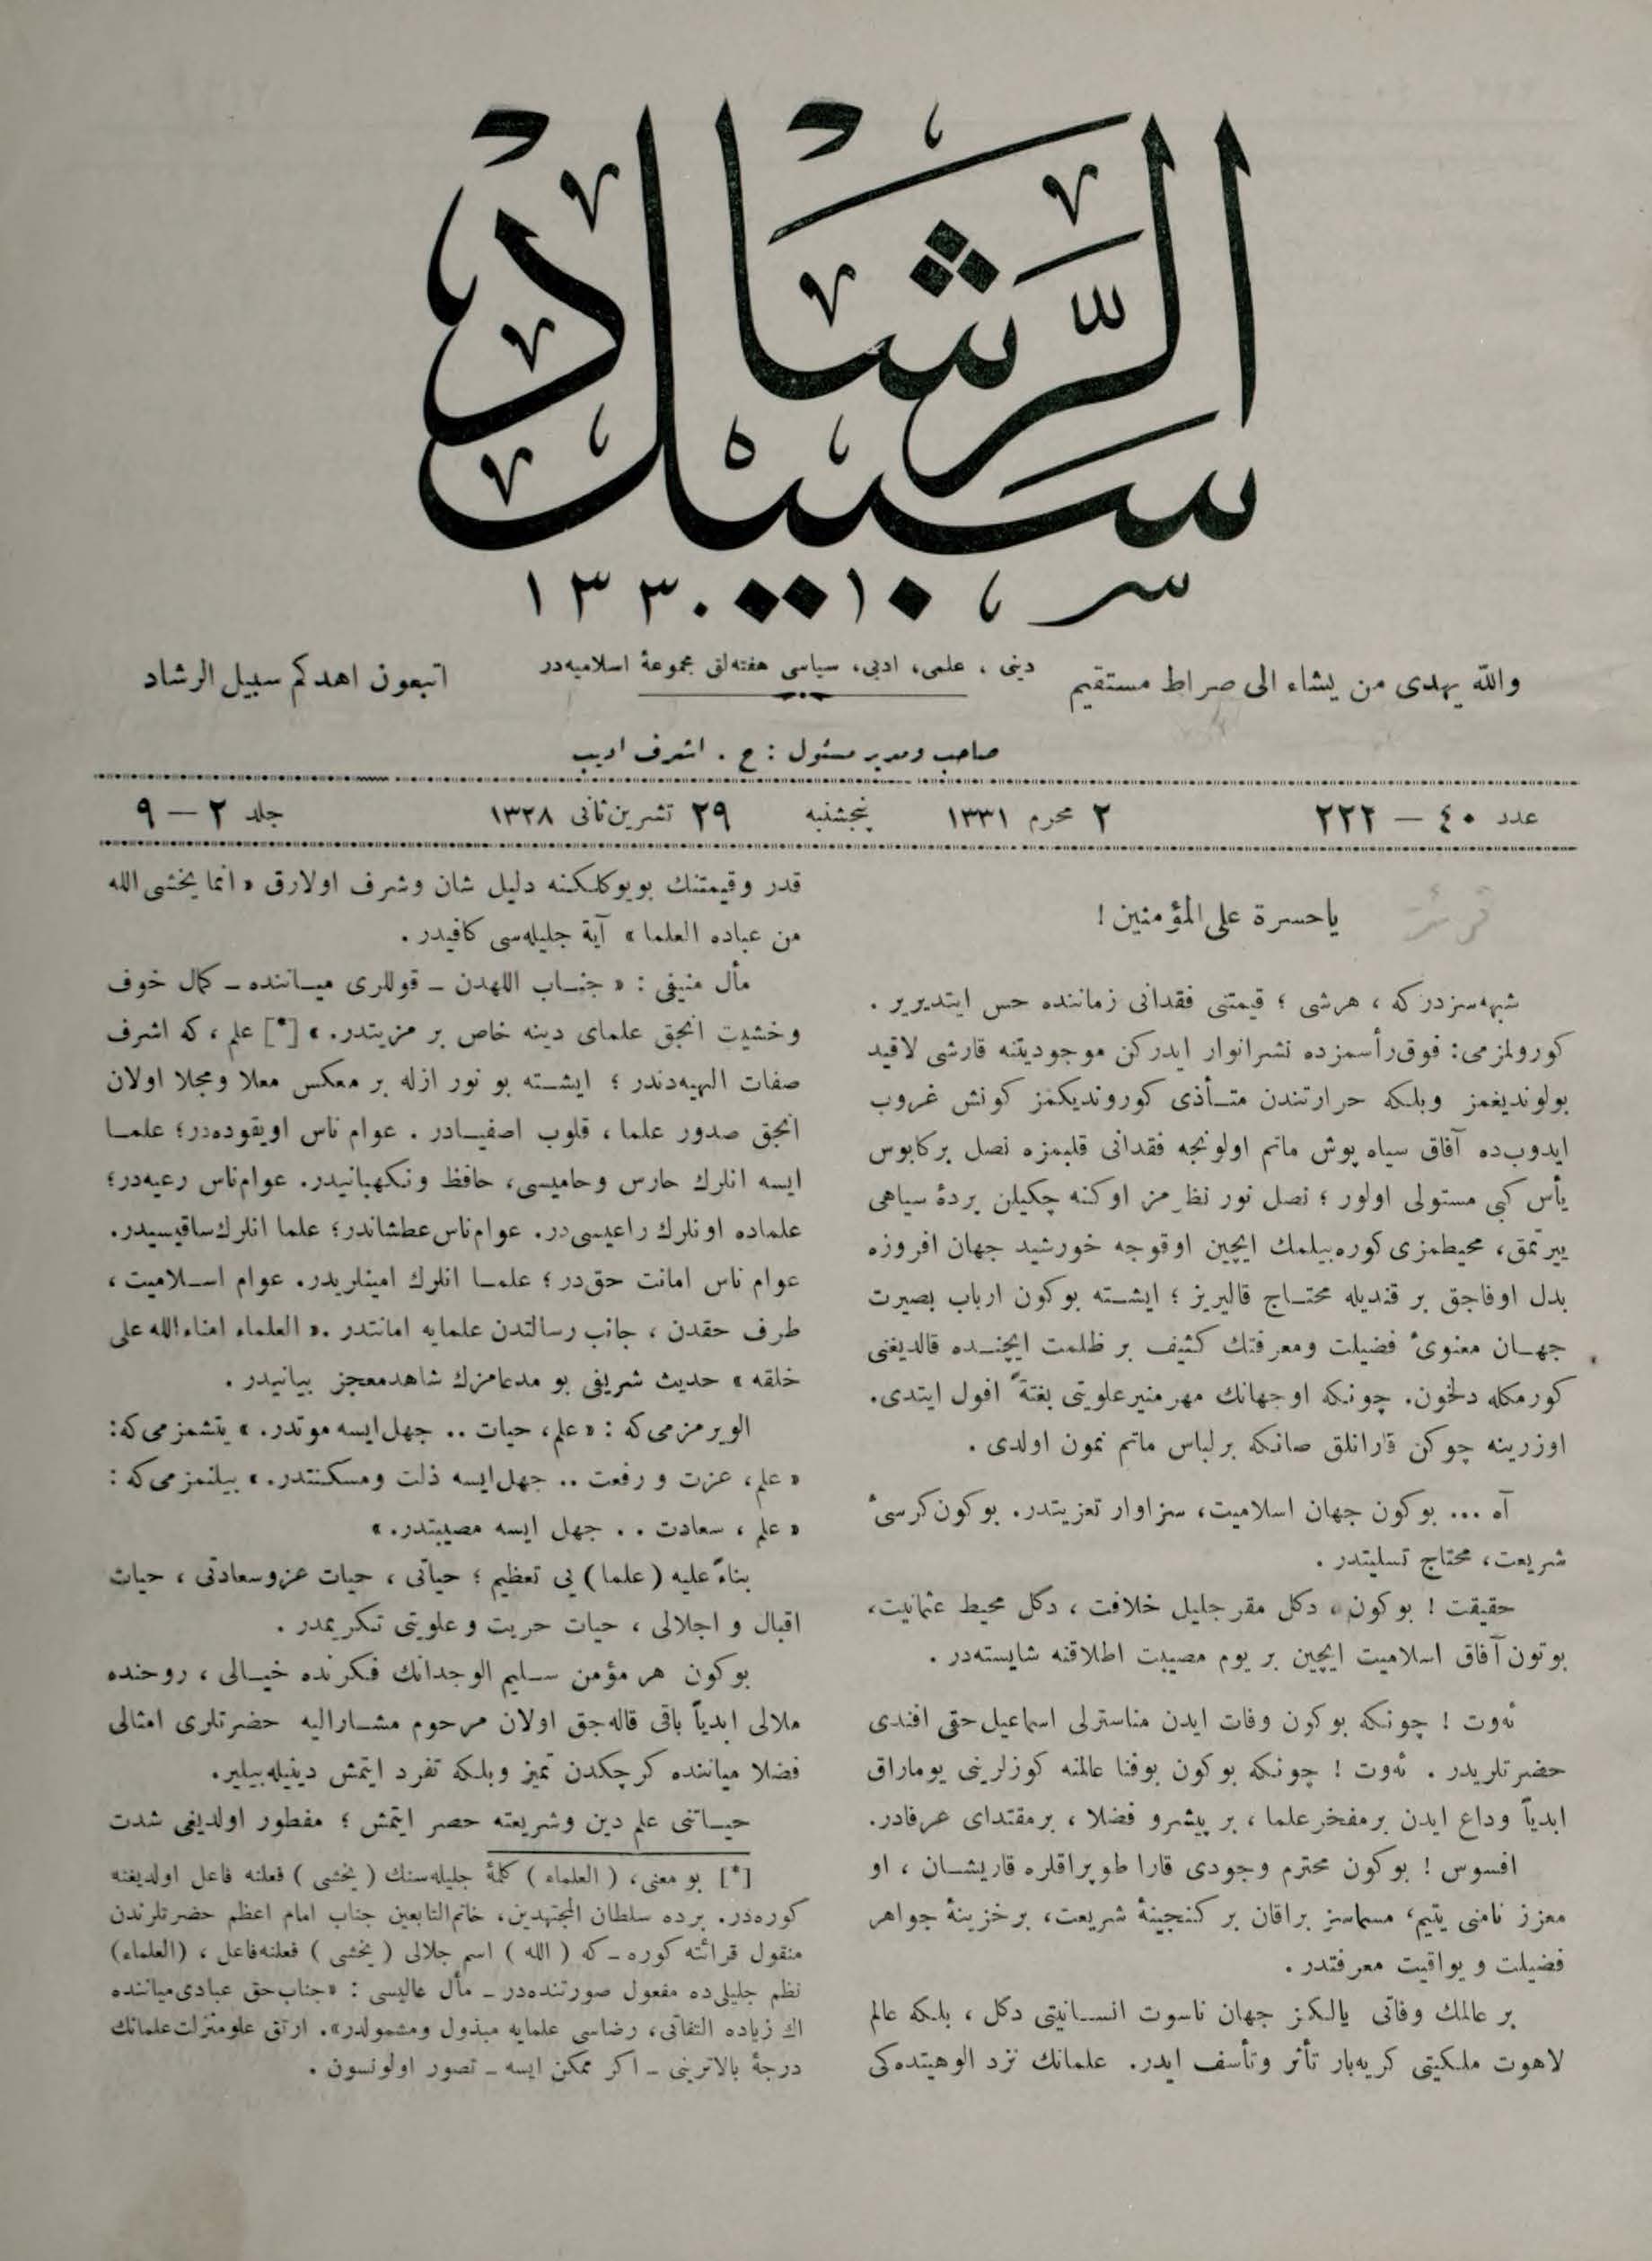 سبيل الرشاد
١٣٣٠
والله يهدى من يشاء الى صراط مستقيم
دينى ، علمى، ادبى، سياسى هفته‌لق مجموعهٔ اسلاميه‌در
اتبعون اهدكم سبيل الرشاد
صاحب و مدير مسئول : ح . اشرف اديب
عدد ٤٠ — ٢٢٢
٢ محرم ١٣٣١
پنجشنبه
٢٩ تشرين‌ثانى ١٣٢٨
جلد ٢ — ٩
ياحسرة على المؤمنين !
شبهه‌سزدركه ، هرشى ؛ قيمتنى فقدانى زماننده حس ايتديرير .
كورولمزمى: فوق‌رأسمزده نشرانوار ايدركن موجوديتنه قارشى لاقيد
بولونديغمز وبلكه حرارتندن متـأذى كوروندیكمز كونش غروب
ايدوب‌ده آفاق سياه پوش ماتم اولونجه فقدانى قلبمزه نصل بركابوس
يأس كبى مستولى اولور ؛ نصل نور نظرمز اوكنه چكيلن پردهٔ سياهى
ييرتمق، محيطمزى كوره‌بيلمك ايچين اوقوجه خورشيد جهان افروزه
بدل اوفاجق بر قنديله محتـاج قاليريز ؛ ايشـته بوكون ارباب بصيرت
جهـان معنوىٔ فضيلت ومعرفتك كثيف بر ظلمت ايچنـده قالديغنى
كورمكله دلخون. چونكه اوجهانك مهرمنيرعلويتى بغتةً افول ايتدى.
اوزرينه چوكن قارانلق صانكه برلباس ماتم نمون اولدى .
آه ... بوكون جهان اسلاميت، سزاوار تعزيتدر. بوكون‌كرسىٔ
شريعت، محتاج تسليتدر .
حقيقت ! بوكون، دكل مقرجليل خلافت ، دكل محيط عثمانيت،
بوتون‌آفاق اسلاميت ايچين بر يوم مصيبت اطلاقنه شايسته‌در .
ئه‌وت ! چونكه بوكون وفات ايدن مناسترلى اسماعيل‌حقى افندى
حضرتلريدر . ئه‌وت ! چونكه بوكون بوفنا عالمنه كوزلرينى يوماراق
ابدياً وداع ايدن برمفخرعلما ، بر پيشرو فضلا ، برمقتداى عرفادر.
افسوس ! بوكون محترم وجودى قارا طوپراقلره قاريشـان ، او
معزز نامنى يتيم، مسماسز براقان بر كنجينهٔ شريعت، برخزينهٔ جواهر
فضيلت و يواقيت معرفتدر .
بر عالمك وفاتى يالكز جهان ناسوت انسـانيتى دكل ، بلكه عالم
لاهوت ملكيتى كريه‌بار تأثر وتأسف ايدر. علمانك نزد الوهيتده‌كى
قدر وقيمتنك بويوكلكنه دليل شان وشرف اولارق « انما يخشى الله
من عباده العلما » آية جليله‌سى كافيدر .
مأل منيفى : « جنـاب اللهدن ـ قوللرى ميـاننده ـ كمال خوف
وخشيت انجق علماى دينه خاص بر مزيتدر. » [*] علم ، كه اشرف
صفات الهيه‌دندر ؛ ايشـته بو نور ازله بر معكس معلا ومجلا اولان
انجق صدور علما ، قلوب اصفيـادر . عوام ناس اويقوده‌در؛ علمـا
ايسه انلرك حارس وحاميسى، حافظ ونكهبانيدر. عوام‌ناس رعيه‌در؛
علماده اونلرك راعيسى‌در. عوام‌ناس‌عطشاندر؛ علما انلرك‌ساقيسيدر.
عوام ناس امانت حق‌در ؛ علمـا انلرك امينلريدر. عوام اسـلاميت ،
طرف حقدن ، جانب رسالتدن علمايه امانتدر .« العلماء امناءالله على
خلقه » حديث شريفى بو مدعامزك شاهدمعجز بيانيدر .
الويرمزمى‌كه : « علم، حيات .. جهل‌ايسه موتدر. » يتشمزمى‌كه:
« علم، عزت و رفعت .. جهل‌ايسه ذلت ومسكنتدر. » بيلنمزمى‌كه :
« علم ، سعادت .. جهل ايسه مصيبتدر. »
بناءً عليه ( علما ) يى تعظيم ؛ حياتى ، حيات عزوسعادتى ، حيات
اقبال و اجلالى ، حيات حريت و علويتى تكريمدر .
بوكون هر مؤمن سـليم الوجدانك فكرنده خيـالى ، روحنده
ملالى ابدياً باقى قاله‌جق اولان مرحوم مشـاراليه حضرتلرى امثالى
فضلا مياننده كرچكدن تميز وبلكه تفرد ايتمش دينيله‌بيلير.
حيـاتنى علم دين وشريعته حصر ايتمش ؛ مفطور اولديغى شدت
[*] بو معنى، ( العلماء ) كلمهٔ جليله‌سنك ( يخشى ) فعلنه فاعل اولديغنه
كوره‌در. برده سلطان المجتهدين، خاتم‌التابعين جناب امام اعظم حضرتلرندن
منقول قرائته كوره ـ كه ( الله ) اسم جلالى ( يخشى ) فعلنه‌فاعل ، (العلماء)
نظم جليلى‌ده مفعول صورتنده‌در ـ مأل عاليسى : «جناب‌حق عبادى‌مياننده
اك زياده التفاتى، رضاسى علمايه مبذول ومشمولدر». ارتق علومنزلت‌علمانك
درجهٔ بالاترينى ـ اكر ممكن ايسه ـ تصور اولونسون .